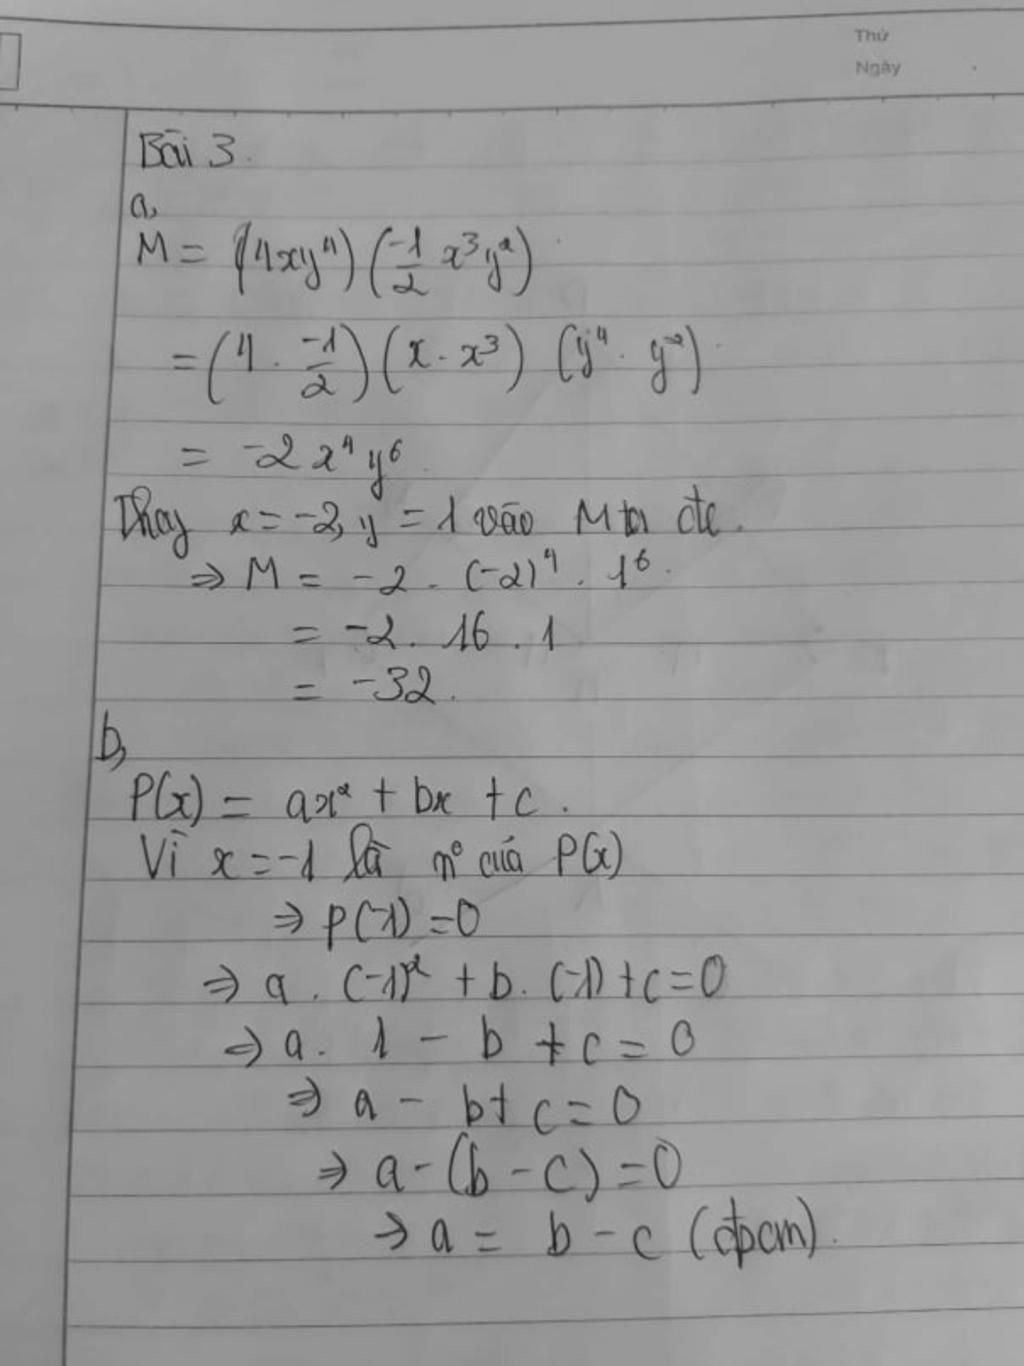 Thứ
Ngày
Bài 3.
a,
M = (4xy⁴)(-1/2 x³y²)
= (4 · -1/2)(x · x³) (y⁴ · y²)
= -2x⁴y⁶
Thay x = -2, y = 1 vào M ta đc.
⇒ M = -2 · (-2)⁴ · 1⁶.
= -2 . 16 . 1
= -32.
b,
P(x) = ax² + bx + c.
Vì x = -1 là n° của P(x)
⇒ P(-1) = 0
⇒ a . (-1)² + b . (-1) + c = 0
⇒ a . 1 - b + c = 0
⇒ a - b + c = 0
⇒ a - (b - c) = 0
⇒ a = b - c (đpcm).